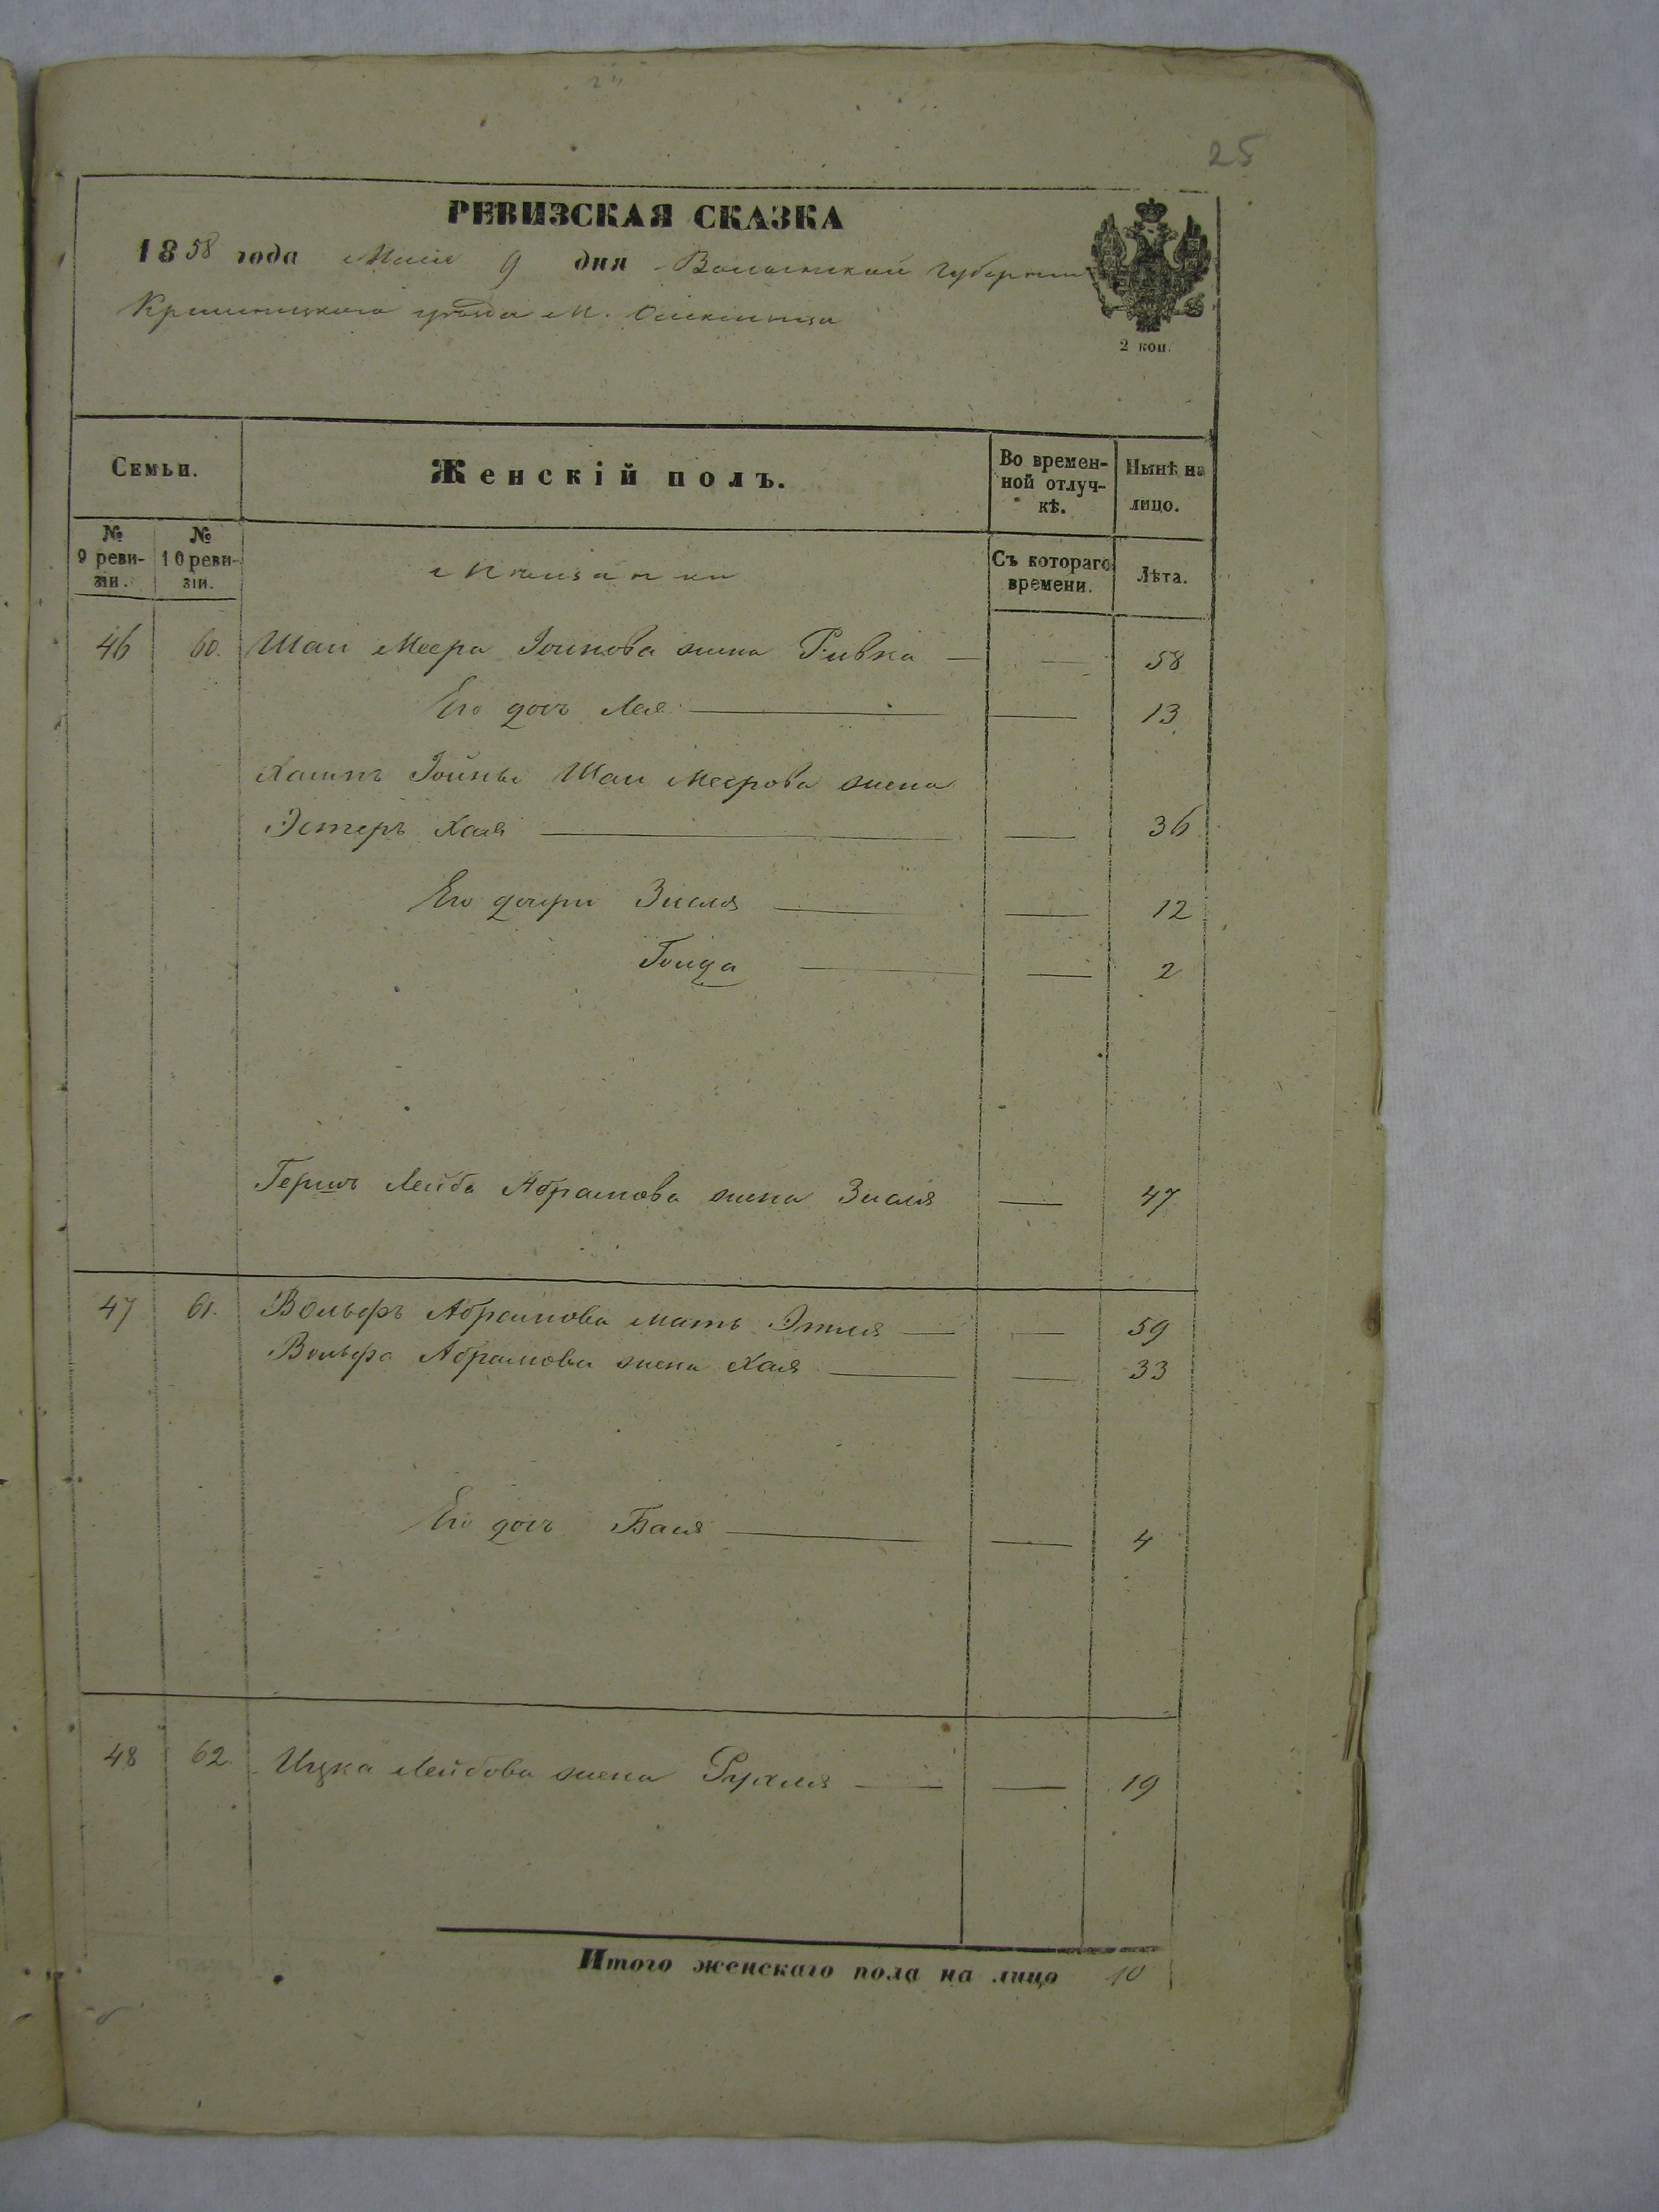 25
РЕВИЗСКАЯ СКАЗКА
1858 года Маія 9 дня Волынской Губерніи
Кременецкаго уѣзда М.
2 коп.
Семьи. Женскій полъ. Во времен-ной отлуч-кѣ. Нынѣ на лицо.
№ 9 реви-зіи. № 10 реви-зіи. Мѣщанки Съ котораго времени. Лѣта.
46 60. Шаи Меера Іоинова жена Ривка — — 58
Его дочь Лая — — 13
Іойны Шаи Меерова жена
Эстеръ Хая — — 36
Его дочери Зисля — — 12
Голда — — 2
Гершъ Лейба Абрамова жена Зисля — 47
47 61. Вольфъ Абрамова мать Этля — — 59
Вольфа Абрамова жена Хая — — 33
Его дочь Бася — — 4
48 62. Ицка Лейбова жена Рухля — — 19
Итого женскаго пола на лицо 10